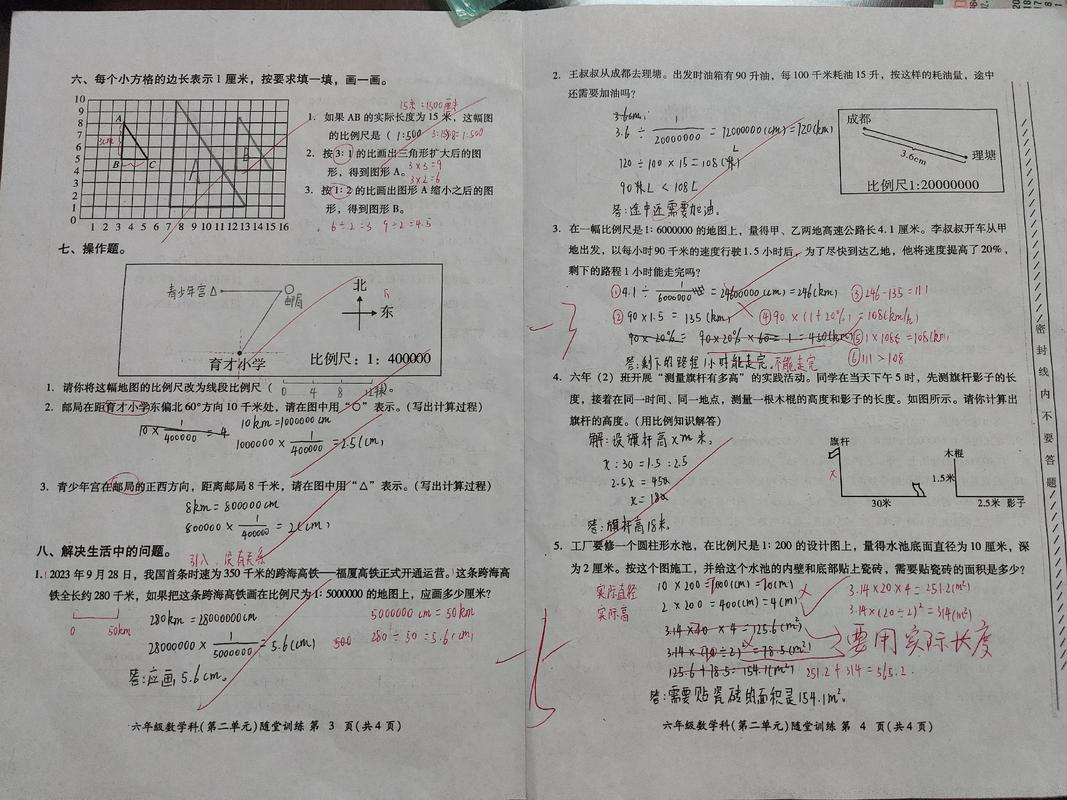 六、每个小方格的边长表示1厘米，按要求填一填，画一画。
10
9
8
7
6
5
4
3
2
1
0
1 2 3 4 5 6 7 8 9 10 11 12 13 14 15 16
A
B
C
3cm
A
B
15米=1500厘米
1. 如果AB的实际长度为15米，这幅图
的比例尺是（ 1:500 3:1500=1:500
2. 按3:1的比画出三角形扩大后的图
形，得到图形A。 3×3=9
3×2=6
3. 按1:2的比画出图形A缩小之后的图
形，得到图形B。
6÷2=3 9÷2=4.5
七、操作题。
青少年宫△
邮局
北
东
育才小学
比例尺：1：400000
1. 请你将这幅地图的比例尺改为线段比例尺（ 0 4 8 12千米 ）。
2. 邮局在距育才小学东偏北60°方向10千米处，请在图中用“○”表示。（写出计算过程）
10×1/400000=4 10km=1000000cm
1000000×1/400000=2.5(cm)
3. 青少年宫在邮局的正西方向，距离邮局8千米，请在图中用“△”表示。（写出计算过程）
8km=800000cm
800000×1/400000=2(cm)
八、解决生活中的问题。
引入，没有关系
1. 2023年9月28日，我国首条时速为350千米的跨海高铁——福厦高铁正式开通运营。这条跨海高
铁全长约280千米，如果把这条跨海高铁画在比例尺为1：5000000的地图上，应画多少厘米？
0 50km
280km=28000000cm
5000000cm=50km
28000000×1/5000000=5.6(cm)
280÷50=5.6(cm)
答：应画5.6cm。
六年级数学科(第二单元)随堂训练 第 3 页(共4页)
2. 王叔叔从成都去理塘。出发时油箱有90升油，每100千米耗油15升，按这样的耗油量，途中
还需要加油吗？
3.6÷1/20000000=72000000(cm)=720(km)
720÷100×15=108(L)
90L<108L
答：途中还需要加油。
成都
3.6cm
理塘
比例尺1:20000000
3. 在一幅比例尺是1：6000000的地图上，量得甲、乙两地高速公路长4.1厘米。李叔叔开车从甲
地出发，以每小时90千米的速度行驶1.5小时后，为了尽快到达乙地，他将速度提高了20%，
剩下的路程1小时能走完吗？
①4.1÷1/6000000=24600000(cm)=246(km) ③246-135=111
②90×1.5=135(km) ④90×(1+20%)=108(km/h)
⑤1×108=108(km)
答：剩下的路程1小时能走完 不能走完 ⑥111>108
-3
4. 六年（2）班开展“测量旗杆有多高”的实践活动。同学在当天下午5时，先测旗杆影子的长
度，接着在同一时间、同一地点，测量一根木棍的高度和影子的长度。如图所示。请你计算出
旗杆的高度。（用比例知识解答）
解：设旗杆高x m
x:30=1.5:2.5
2.5x=45
x=18
答：旗杆高18米。
旗杆
x
30米
木棍
1.5米
2.5米 影子
5. 工厂要修一个圆柱形水池，在比例尺是1：200的设计图上，量得水池底面直径为10厘米，深
为2厘米。按这个图施工，并给这个水池的内壁和底部贴上瓷砖，需要贴瓷砖的面积是多少？
实际直径
10×200=1000(cm)=10(m)
3.14×20×4=251.2(m²)
实际高
2×200=400(cm)=4(m)
3.14×(20÷2)²=314(m²)
3.14×10×4=125.6(m²)
3.14×(10÷2)²=78.5(m²)
要用实际长度
125.6+78.5=154.1(m²)
251.2+314=565.2
答：需要贴瓷砖的面积是154.1m²。
六年级数学科(第二单元)随堂训练 第 4 页(共4页)
密封线内不要答题